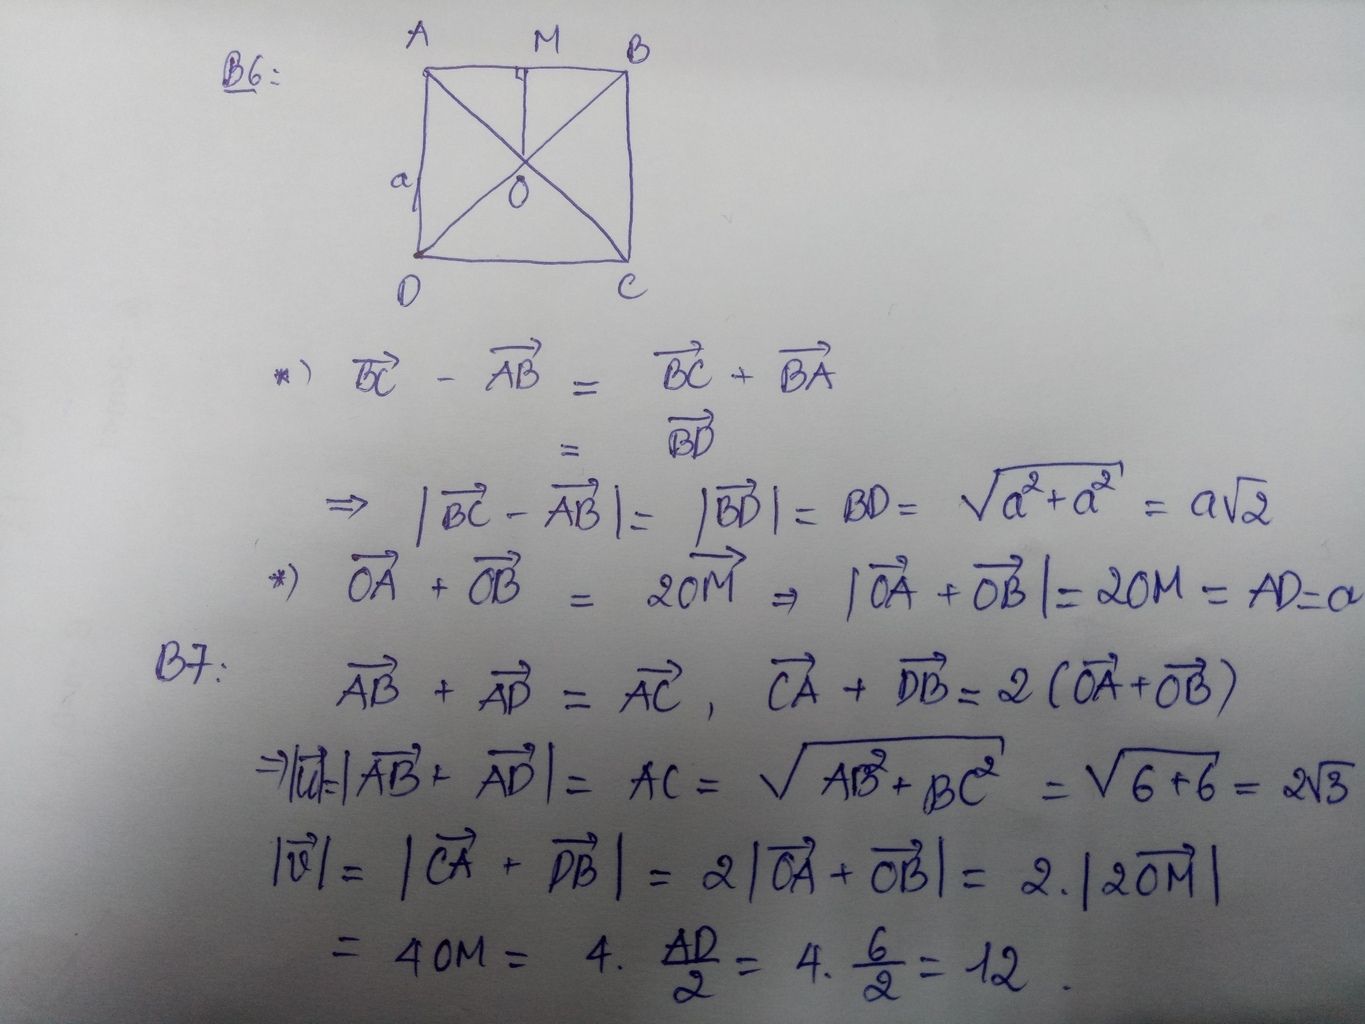 B6:
A M B
a
O
D C
*) $\overrightarrow{BC} - \overrightarrow{AB} = \overrightarrow{BC} + \overrightarrow{BA}$
$= \overrightarrow{BD}$
$\Rightarrow |\overrightarrow{BC} - \overrightarrow{AB}| = |\overrightarrow{BD}| = BD = \sqrt{a^2 + a^2} = a\sqrt{2}$
*) $\overrightarrow{OA} + \overrightarrow{OB} = 2\overrightarrow{OM} \Rightarrow |\overrightarrow{OA} + \overrightarrow{OB}| = 2OM = AD = a$
B7:
$\overrightarrow{AB} + \overrightarrow{AD} = \overrightarrow{AC}, \overrightarrow{CA} + \overrightarrow{DB} = 2(\overrightarrow{OA} + \overrightarrow{OB})$
$\Rightarrow |\overrightarrow{u}| = |\overrightarrow{AB} + \overrightarrow{AD}| = AC = \sqrt{AB^2 + BC^2} = \sqrt{6 + 6} = 2\sqrt{3}$
$|\overrightarrow{v}| = |\overrightarrow{CA} + \overrightarrow{DB}| = 2|\overrightarrow{OA} + \overrightarrow{OB}| = 2.|2\overrightarrow{OM}|$
$= 4OM = 4. \frac{AD}{2} = 4. \frac{6}{2} = 12.$